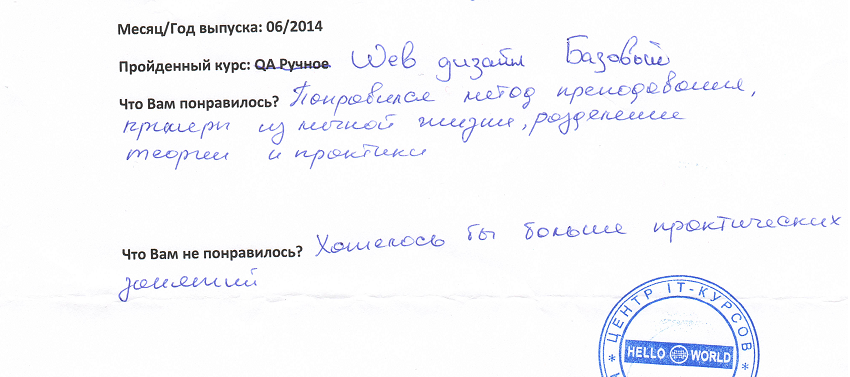 Месяц/Год выпуска: 06/2014
Пройденный курс: QA Ручное Web дизайн Базовый
Что Вам понравилось? Понравился метод преподавания,
примеры из личной жизни, разделение
теории и практики
Что Вам не понравилось? Хотелось бы больше практических
занятий
* ЦЕНТР IT-КУРСОВ *
HELLO WORLD